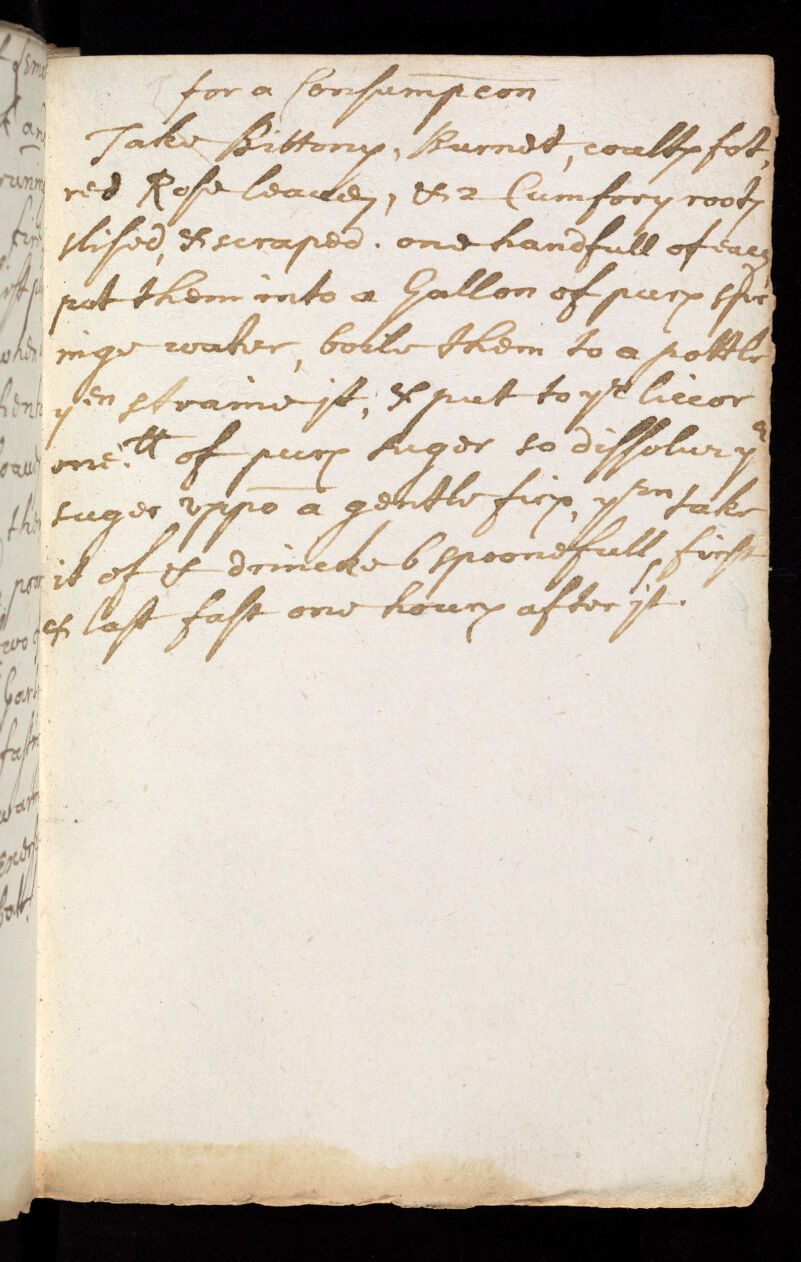 for a Consumpcon
Take Bittony, Burnet, coultsfot,
red Rose leaues, & 2 Cumfory roots
slised, & scraped. one handfull of each
put them into a Gallon of pure spr
inge water, boile them to a pottle
yen straine it, & put to ye liccor
one tt of pure suger so dissolue ye
suger vppo a gentle fire, yen take
it of & drincke 6 spoonefull, first
& last fast one houre after it.